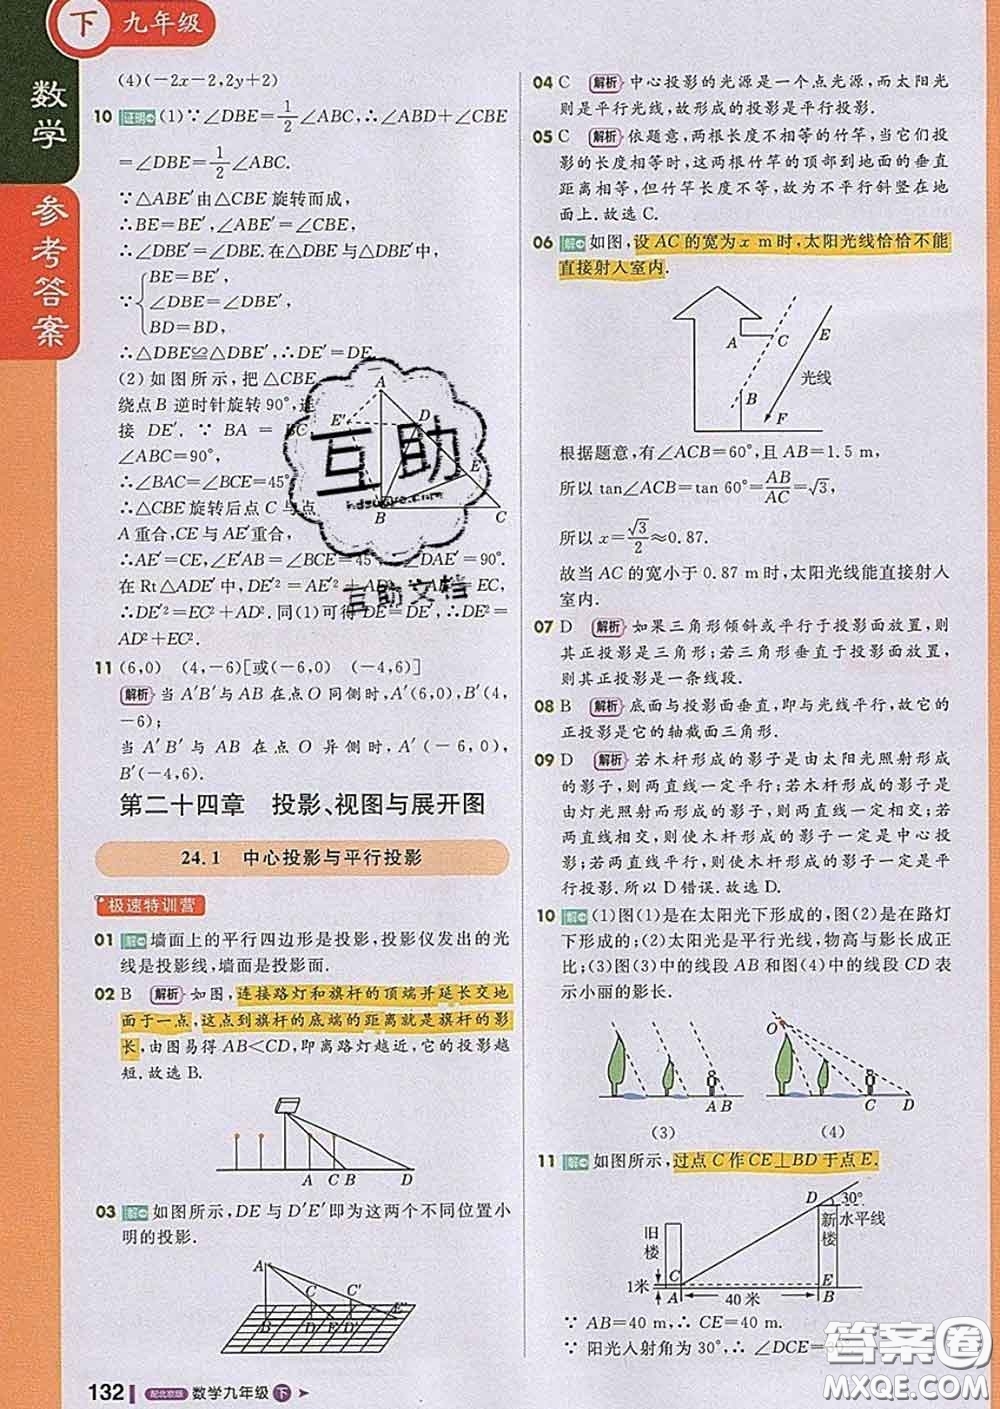 下 九年级
数学
参考答案
(4)(-2x-2,2y+2)
10 证明 (1)∵∠DBE=1/2∠ABC,∴∠ABD+∠CBE
=∠DBE=1/2∠ABC.
∵△ABE′由△CBE旋转而成,
∴BE=BE′,∠ABE′=∠CBE,
∴∠DBE′=∠DBE.在△DBE与△DBE′中,
BE=BE′,
∵ ∠DBE=∠DBE′,
BD=BD,
∴△DBE≌△DBE′,∴DE′=DE.
(2)如图所示,把△CBE
绕点B逆时针旋转90°,连
接DE′.∵BA=BC,
∠ABC=90°,
∴∠BAC=∠BCE=45°
∴△CBE旋转后点C与点
A重合,CE与AE′重合,
∴AE′=CE,∠E′AB=∠BCE=45°,∴∠DAE′=90°.
在Rt△ADE′中,DE′²=AE′²+AD²,∵AE′=EC,
∴DE′²=EC²+AD².同(1)可得DE=DE′,∴DE²=
AD²+EC².
A
E′
D
E
B
C
11 (6,0) (4,-6)[或(-6,0) (-4,6)]
解析 当A′B′与AB在点O同侧时,A′(6,0),B′(4,
-6);
当A′B′与AB在点O异侧时,A′(-6,0),
B′(-4,6).
第二十四章 投影、视图与展开图
24.1 中心投影与平行投影
极速特训营
01 解 墙面上的平行四边形是投影,投影仪发出的光
线是投影线,墙面是投影面.
02 B 解析 如图,连接路灯和旗杆的顶端并延长交地
面于一点,这点到旗杆的底端的距离就是旗杆的影
长,由图易得AB<CD,即离路灯越近,它的投影越
短.故选B.
A C B D
03 解 如图所示,DE与D′E′即为这两个不同位置小
明的投影.
A
C C′
B D E D′ E′
132 配北京版 数学九年级 下
04 C 解析 中心投影的光源是一个点光源,而太阳光
则是平行光线,故形成的投影是平行投影.
05 C 解析 依题意,两根长度不相等的竹竿,当它们投
影的长度相等时,这两根竹竿的顶部到地面的垂直
距离相等,但竹竿长度不等,故为不平行斜竖在地
面上.故选C.
06 解 如图,设AC的宽为x m时,太阳光线恰恰不能
直接射入室内.
A C E
光线
B
F
根据题意,有∠ACB=60°,且AB=1.5 m,
所以tan∠ACB=tan 60°=AB/AC=√3,
所以x=√3/2≈0.87.
故当AC的宽小于0.87 m时,太阳光线能直接射入
室内.
07 D 解析 如果三角形倾斜或平行于投影面放置,则
其正投影是三角形;若三角形垂直于投影面放置,
则其正投影是一条线段.
08 B 解析 底面与投影面垂直,即与光线平行,故它的
正投影是它的轴截面三角形.
09 D 解析 若木杆形成的影子是由太阳光照射形成
的影子,则两直线一定平行;若木杆形成的影子是
由灯光照射而形成的影子,则两直线一定相交;若
两直线相交,则使木杆形成的影子一定是中心投
影;若两直线平行,则使木杆形成的影子不一定是平
行投影,所以D错误.故选D.
10 解 (1)图(1)是在太阳光下形成的,图(2)是在路灯
下形成的;(2)太阳光是平行光线,物高与影长成正
比;(3)图(3)中的线段AB和图(4)中的线段CD表
示小丽的影长.
A B
(3)
O
C D
(4)
11 解 如图所示,过点C作CE⊥BD于点E.
D 30°
水平线
旧楼
新楼
1米
C E
A 40米 B
∵AB=40 m,∴CE=40 m.
∵阳光入射角为30°,∴∠DCE=
互助
hdzuoye.com
互助文档
答案圈
MXQE.COM